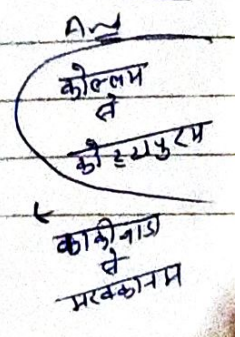 Ans
कोल्लम
से
कोट्टयपुरम
काकीनाडा
से
मरक्कानम